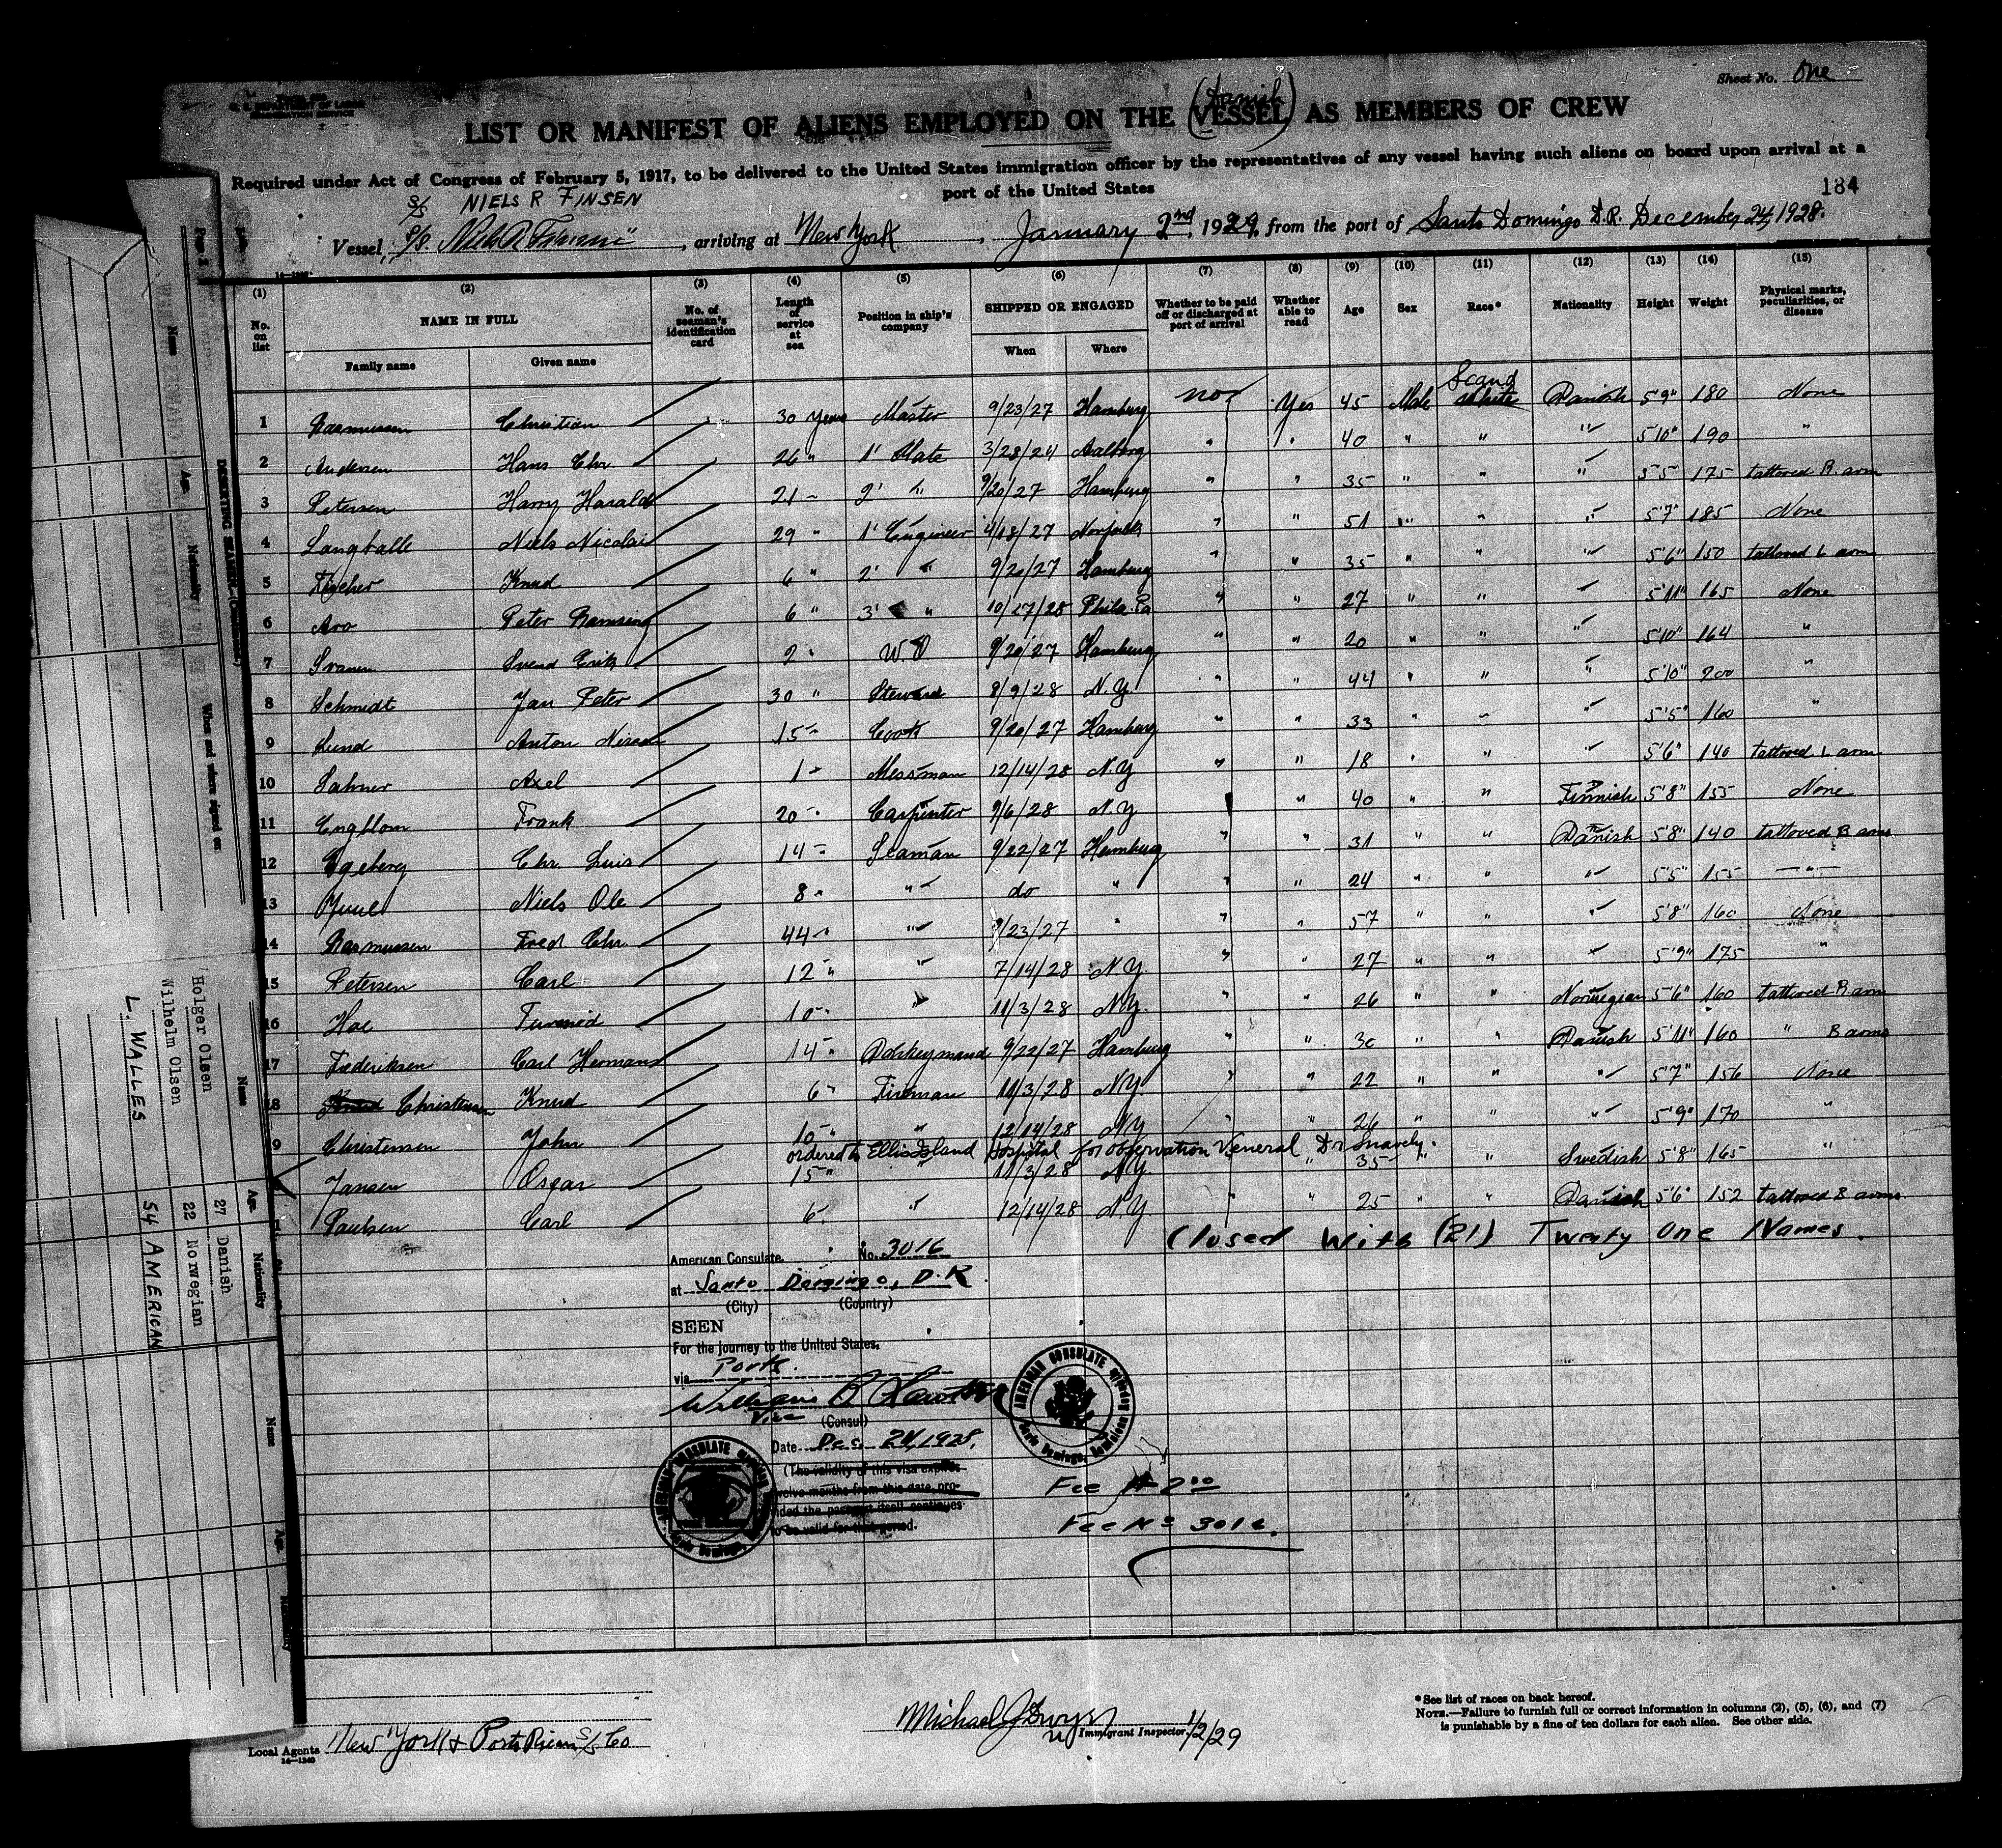 Sheet No. One
U. S. DEPARTMENT OF LABOR
IMMIGRATION SERVICE
(Danish)
LIST OR MANIFEST OF ALIENS EMPLOYED ON THE (VESSEL) AS MEMBERS OF CREW
Required under Act of Congress of February 5, 1917, to be delivered to the United States immigration officer by the representatives of any vessel having such aliens on board upon arrival at a
port of the United States
184
S/S NIELS R FINSEN
Vessel, S/S. , arriving at New York , January 2nd 1929, from the port of Santo Domingo D.R. December 24, 1928.
(1) (2) (3) (4) (5) (6) (7) (8) (9) (10) (11) (12) (13) (14) (15)
No. on list NAME IN FULL No. of seaman's identification card Length of service at sea Position in ship's company SHIPPED OR ENGAGED Whether to be paid off or discharged at port of arrival Whether able to read Age Sex Race* Nationality Height Weight Physical marks, peculiarities, or disease
Family name Given name When Where
Scand
1 Rasmussen Christian 30 years Master 9/23/27 Hamburg no Yes 45 Male White Danish 5'9" 180 None
2 Andersen Hans Chr. 26 " 1' Mate 3/28/24 Aalborg " " 40 " " " 5'10" 190 "
3 Petersen Harry Harald 21 " 2' " 9/20/27 Hamburg " " 35 " " " 5'5" 175 tattoved R. arm
4 Langballe Niels Nicolai 29 " 1' Engineer 4/18/27 Norfolk " " 51 " " " 5'7" 185 None
5 Knud 6 " 2' " 9/20/27 Hamburg " " 35 " " " 5'6" 150 tattoved L arm
6 Aro Peter Ramsing 6 " 3' " 10/27/28 Phila. Pa " " 27 " " " 5'11" 165 None
7 Svanen Svend Erik 2 " W.O 9/20/27 Hamburg " " 20 " " " 5'10" 164 "
8 Schmidt Jan Peter 30 " Steward 8/9/28 N.Y. " " 44 " " " 5'10" 200 "
9 Lund Anton 15 " Cook 9/20/27 Hamburg " " 33 " " " 5'5" 160 "
10 Axel 1 " Messman 12/14/28 N.Y " " 18 " " " 5'6" 140 tattoved L arm
11 Engblom Frank 20 " Carpenter 9/6/28 N.Y " " 40 " " Finnish 5'8" 155 None
12 Egeberg Chr. Luis 14 " Seaman 9/22/27 Hamburg " " 31 " " Danish 5'8" 140 tattoved B arms
13 Juul Niels Ole 8 " " do " " " 24 " " " 5'5" 155 — " —
14 Rasmussen Fred Chr. 44 " " 9/23/27 " " " 57 " " " 5'8" 160 None
15 Petersen Carl 12 " " 7/14/28 N.Y. " " 27 " " " 5'9" 175 "
16 10 " " 11/3/28 N.Y. " " 26 " " Norwegian 5'6" 160 tattoved R. arm
17 Frederiksen Carl Hermans 14 " Donkeymand 9/22/27 Hamburg " " 30 " " Danish 5'11" 160 " B arms
18 Knud Christensen Knud 6 " Fireman 11/3/28 N.Y. " " 22 " " " 5'7" 156 None
19 Christensen John 10 " " 12/14/28 N.Y " " 26 " " " 5'9" 170 "
ordered to Ellis Island Hospital for observation Veneral Dr Snavely.
Jansen Oscar 15 " " 11/3/28 N.Y. " " 35 " " Swedish 5'8" 165 "
Paulsen Carl 6 " " 12/14/28 N.Y. " " 25 " " Danish 5'6" 152 tattoved B arms
Closed With (21) Twenty One Names.
American Consulate. No. 3016
at Santo Domingo, D.R
(City) (Country)
SEEN
For the journey to the United States.
via Ports.
William B.
Vice (Consul)
Date Dec. 24, 1928.
(The validity of this visa expires
twelve months from this date, pro-
vided the passport itself continues
to be valid for that period.
AMERICAN CONSULATE
Santo Domingo, Dominican Republic
AMERICAN CONSULATE
Santo Domingo
Fee $2.00
Fee No 3016.
*See list of races on back hereof.
NOTE.—Failure to furnish full or correct information in columns (2), (5), (6), and (7)
is punishable by a fine of ten dollars for each alien. See other side.
Local Agents New York & Porto Rican S/S Co
14—1240
Michael J Dwyer
Immigrant Inspector. 1/2/29
Page 2
DESERTING SEAMEN
Name Age Nationality When and where signed on
Name Age Nationality
Holger Olsen 27 Danish
Wilhelm Olsen 22 Norwegian
L. WALLES 54 AMERICAN
Name Age Nationality